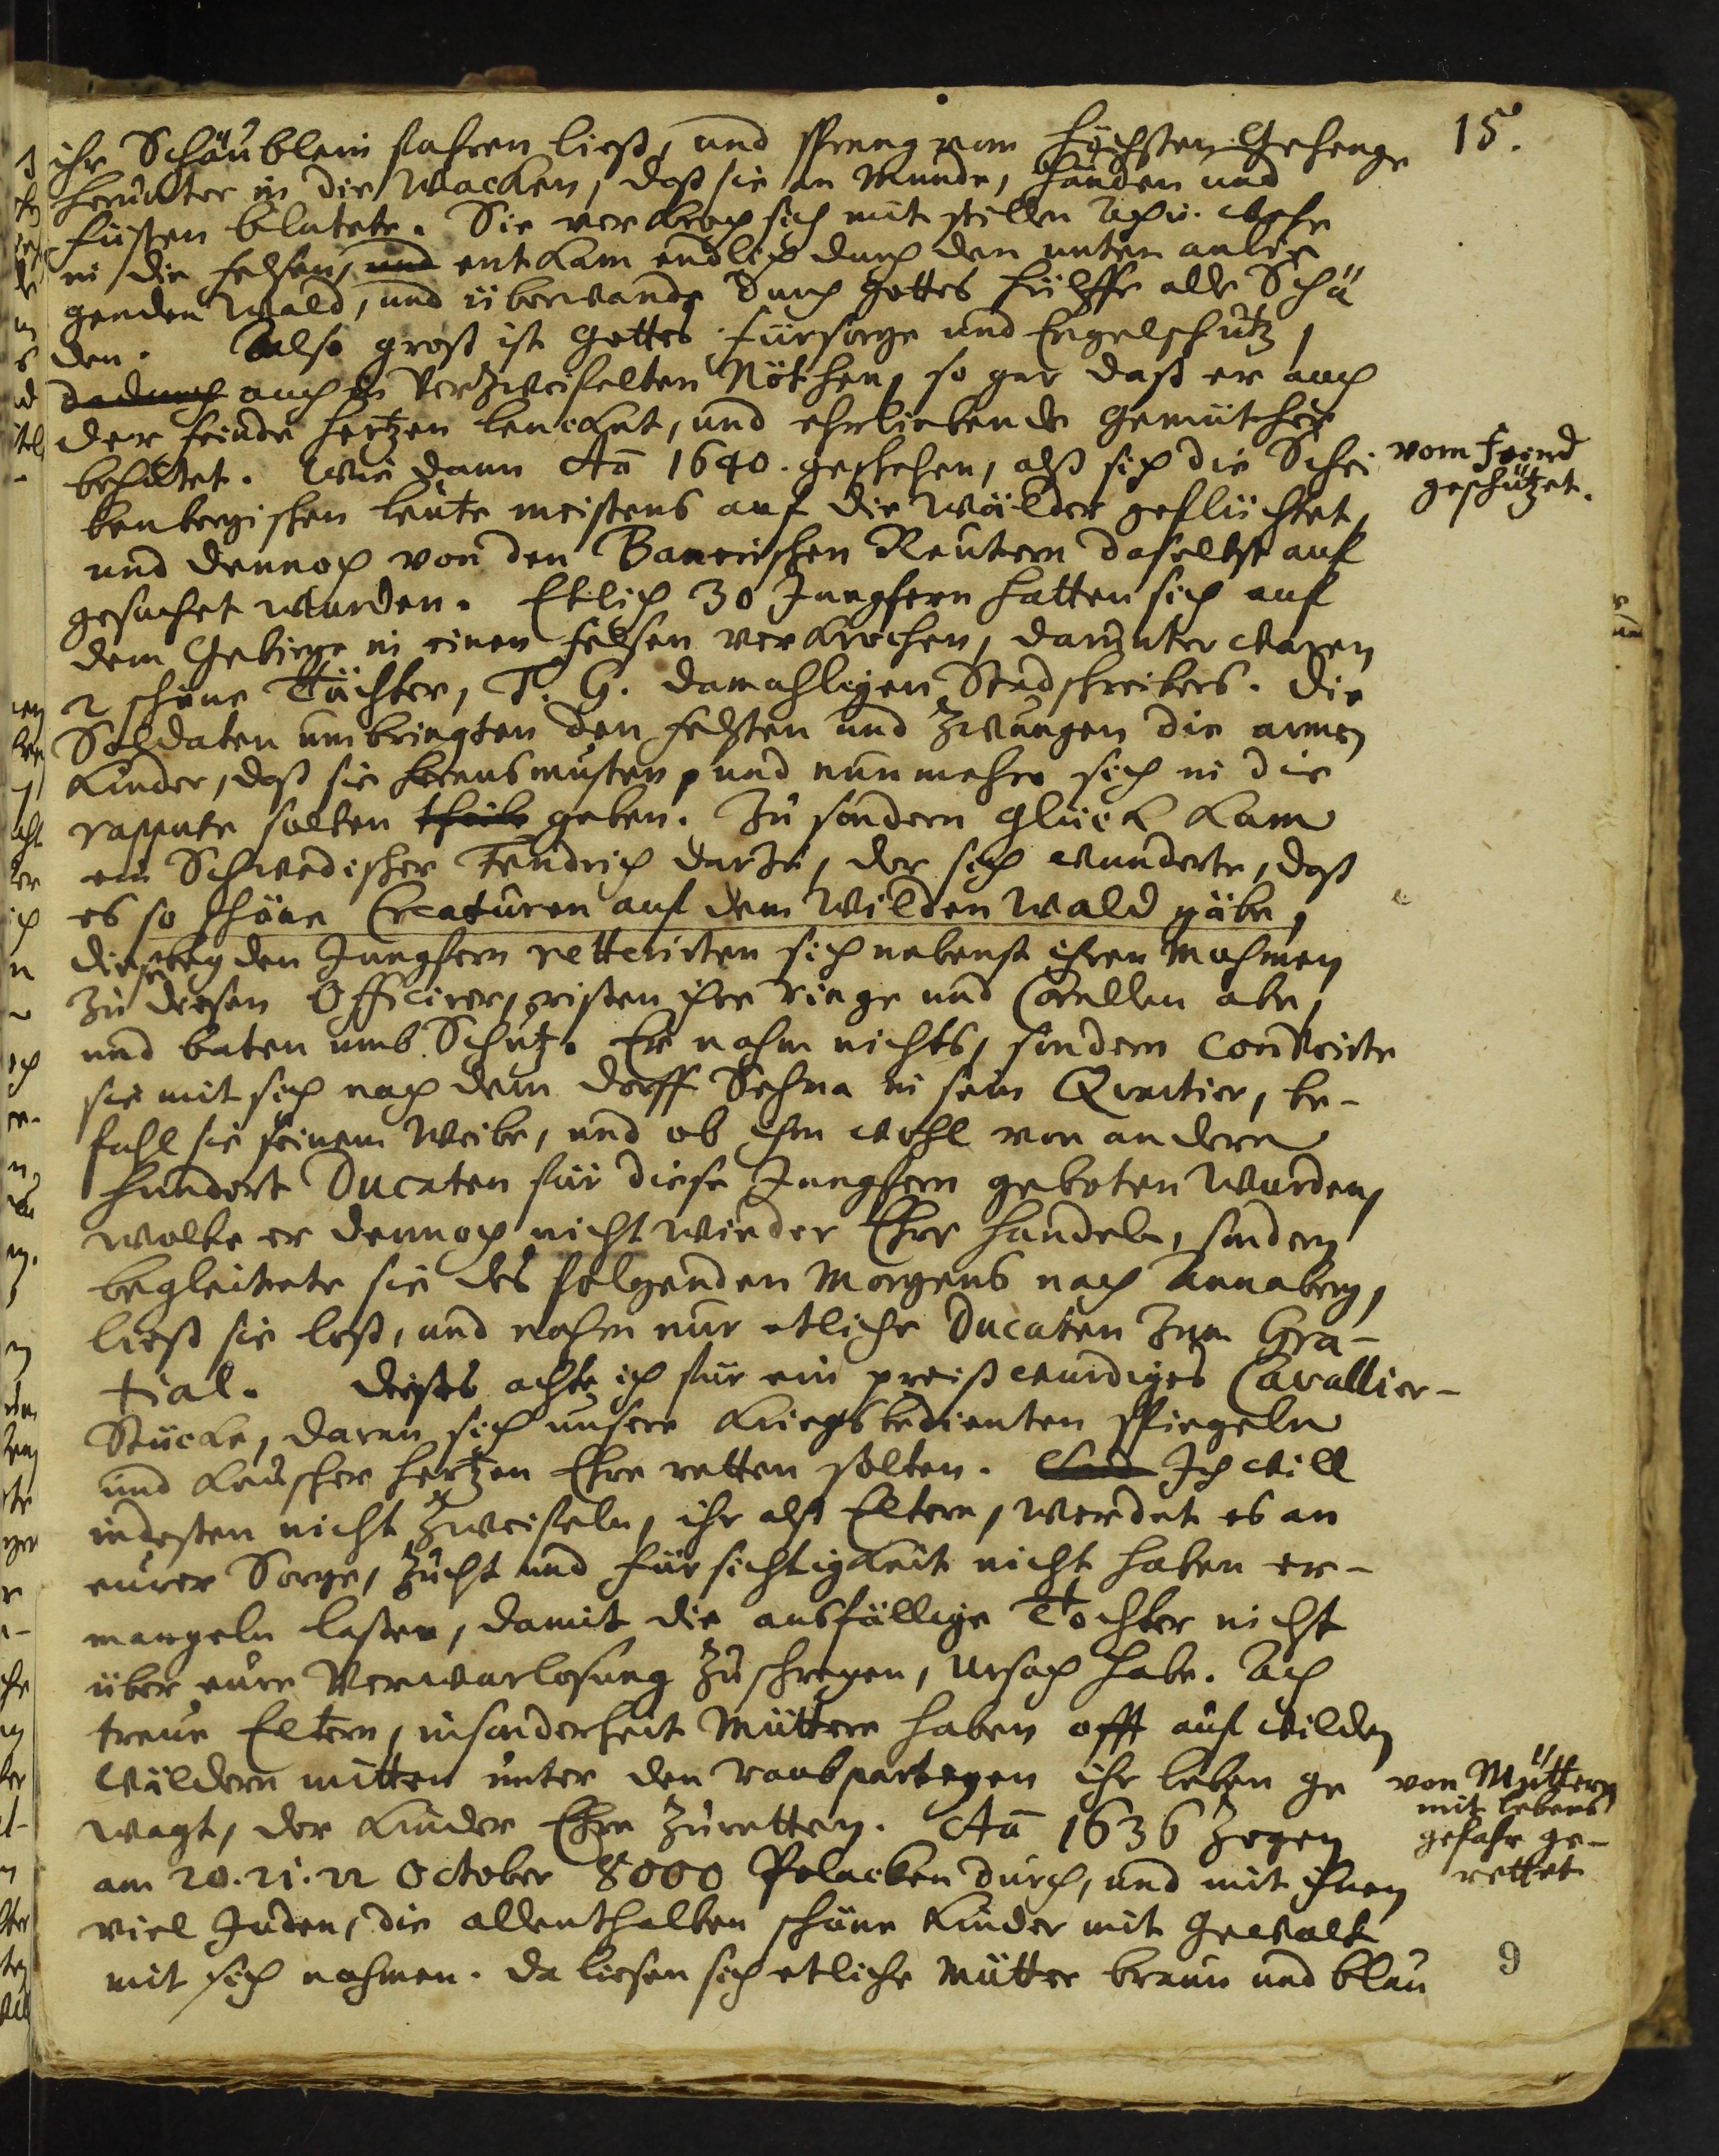 15.
ihr Schäublein fahren ließ, und sprang vom höchsten Gehenge
herunter in die Wacken, daß sie an Munde, Händen und
füßen blutete. Sie verkroch sich mit stillen Ach u. Wehe
in die felsen, und entkam endlich durch den unten anlie
genden Wald, und überwande durch Gottes hülffe alle Schä
den. Also groß ist Gottes fürsorge und Engelschutz,
dadurch auch in verzweifelten Nöthen, so gar daß er auch
der feinde hertzen lencket, und ehrliebende gemüther
behütet. Wie dann Aō 1640. geschehen, alß sich die Schei
benbergischen leute meistens auf die Wälder geflüchtet,
und dennoch von den Banerischen Reutern daselbst auf
gesuchet wurden. Etlich 30 Jungfern hatten sich auf
dem Gebirge in einen felsen verkrochen, darunter waren
2 schöne Töchter, T. G. damahligen Stadschreibers. Die
Soldaten umbringten den felßen und zwungen die armen
Kinder, daß sie heraus musten, und nunmehro sich in die
rappute solten theile geben. Zu sondern glück kam
ein Schwedischer Fendrich darzu, der sich wunderte, daß
es so schöne Creaturen auf dem wilden Wald gäbe,
diese beyden Jungfern retterirten sich nebenst ihren Mahmen
zu diesen Officirer, rißen ihre ringe und Corellen abe,
und baten umb Schutz. Er nahm nichts, sondern condvirte
sie mit sich nach dem dorff Sehma in sein Qvartier, be-
fahl sie seinem Weibe, und ob ihm wohl von andern
hundert Ducaten für diese Jungfern geboten wurden,
wolte er dennoch nicht wieder Ehre handeln, sondern
begleitete sie des folgenden Morgens nach Annaberg,
ließ sie loß, und nahm nur etliche Ducaten zum Gra-
tial. dießes achte ich für ein preißwürdiges Cavallier-
Stücke, daran sich unsere Kriegsbedienten spiegeln
und keuscher hertzen Ehre retten solten. Und Ich will
indeßen nicht zweifeln, ihr alß Eltern, werdet es an
eurer Sorge, zucht und fürsichtigkeit nicht haben er-
mangeln laßen, damit die ausfällige Tochter nicht
über eure Verwarlosung zu schreyen, ursach habe. Ach
treue Eltern, insonderheit Mütter haben offt auf wilden
Wäldern mitten unter den raubparteyen ihr leben ge
wagt, der Kinder Ehre zu retten. Aō 1636 zogen
am 20. 21. 22 October 8000 Polacken durch, und mit ihnen
viel Juden, die allenthalben schöne Kinder mit gewalt
mit sich nahmen. da liesen sich etliche Mütter braun und blau
vom Feind
geschützet.
von Müttern
mit lebens
gefahr ge-
rettet
9